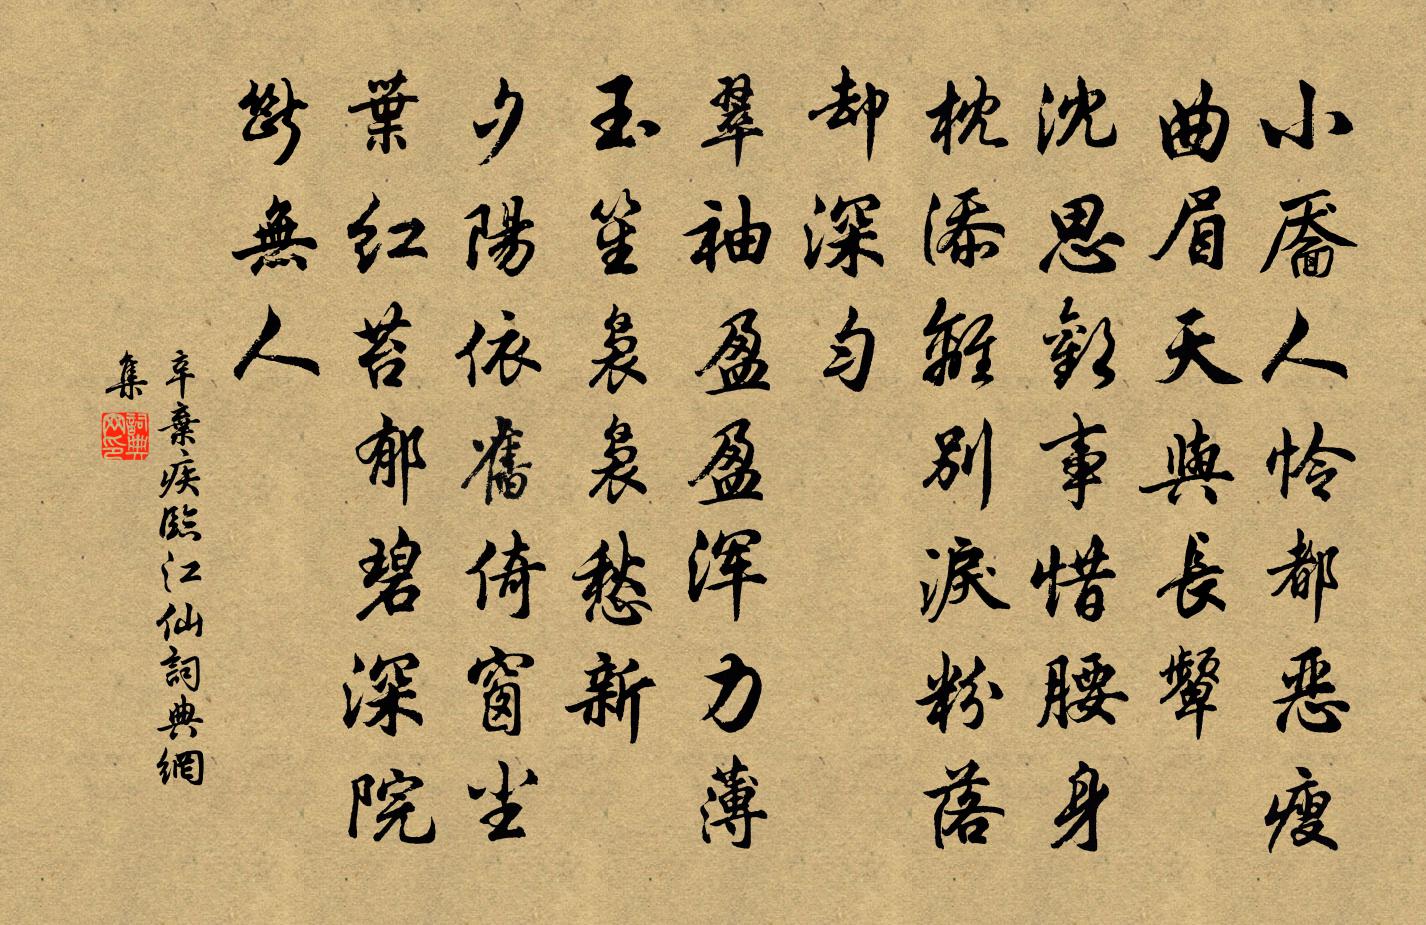 小靨人怜都惡瘦
曲眉天與長顰
沈思歡事惜腰身
枕添離別淚粉落
却深勻
翠袖盈盈渾力薄
玉笙裊裊愁新
夕陽依舊倚窗尘
葉紅苔郁碧深院
斷無人
辛棄疾臨江仙詞典網
集
詞典網印